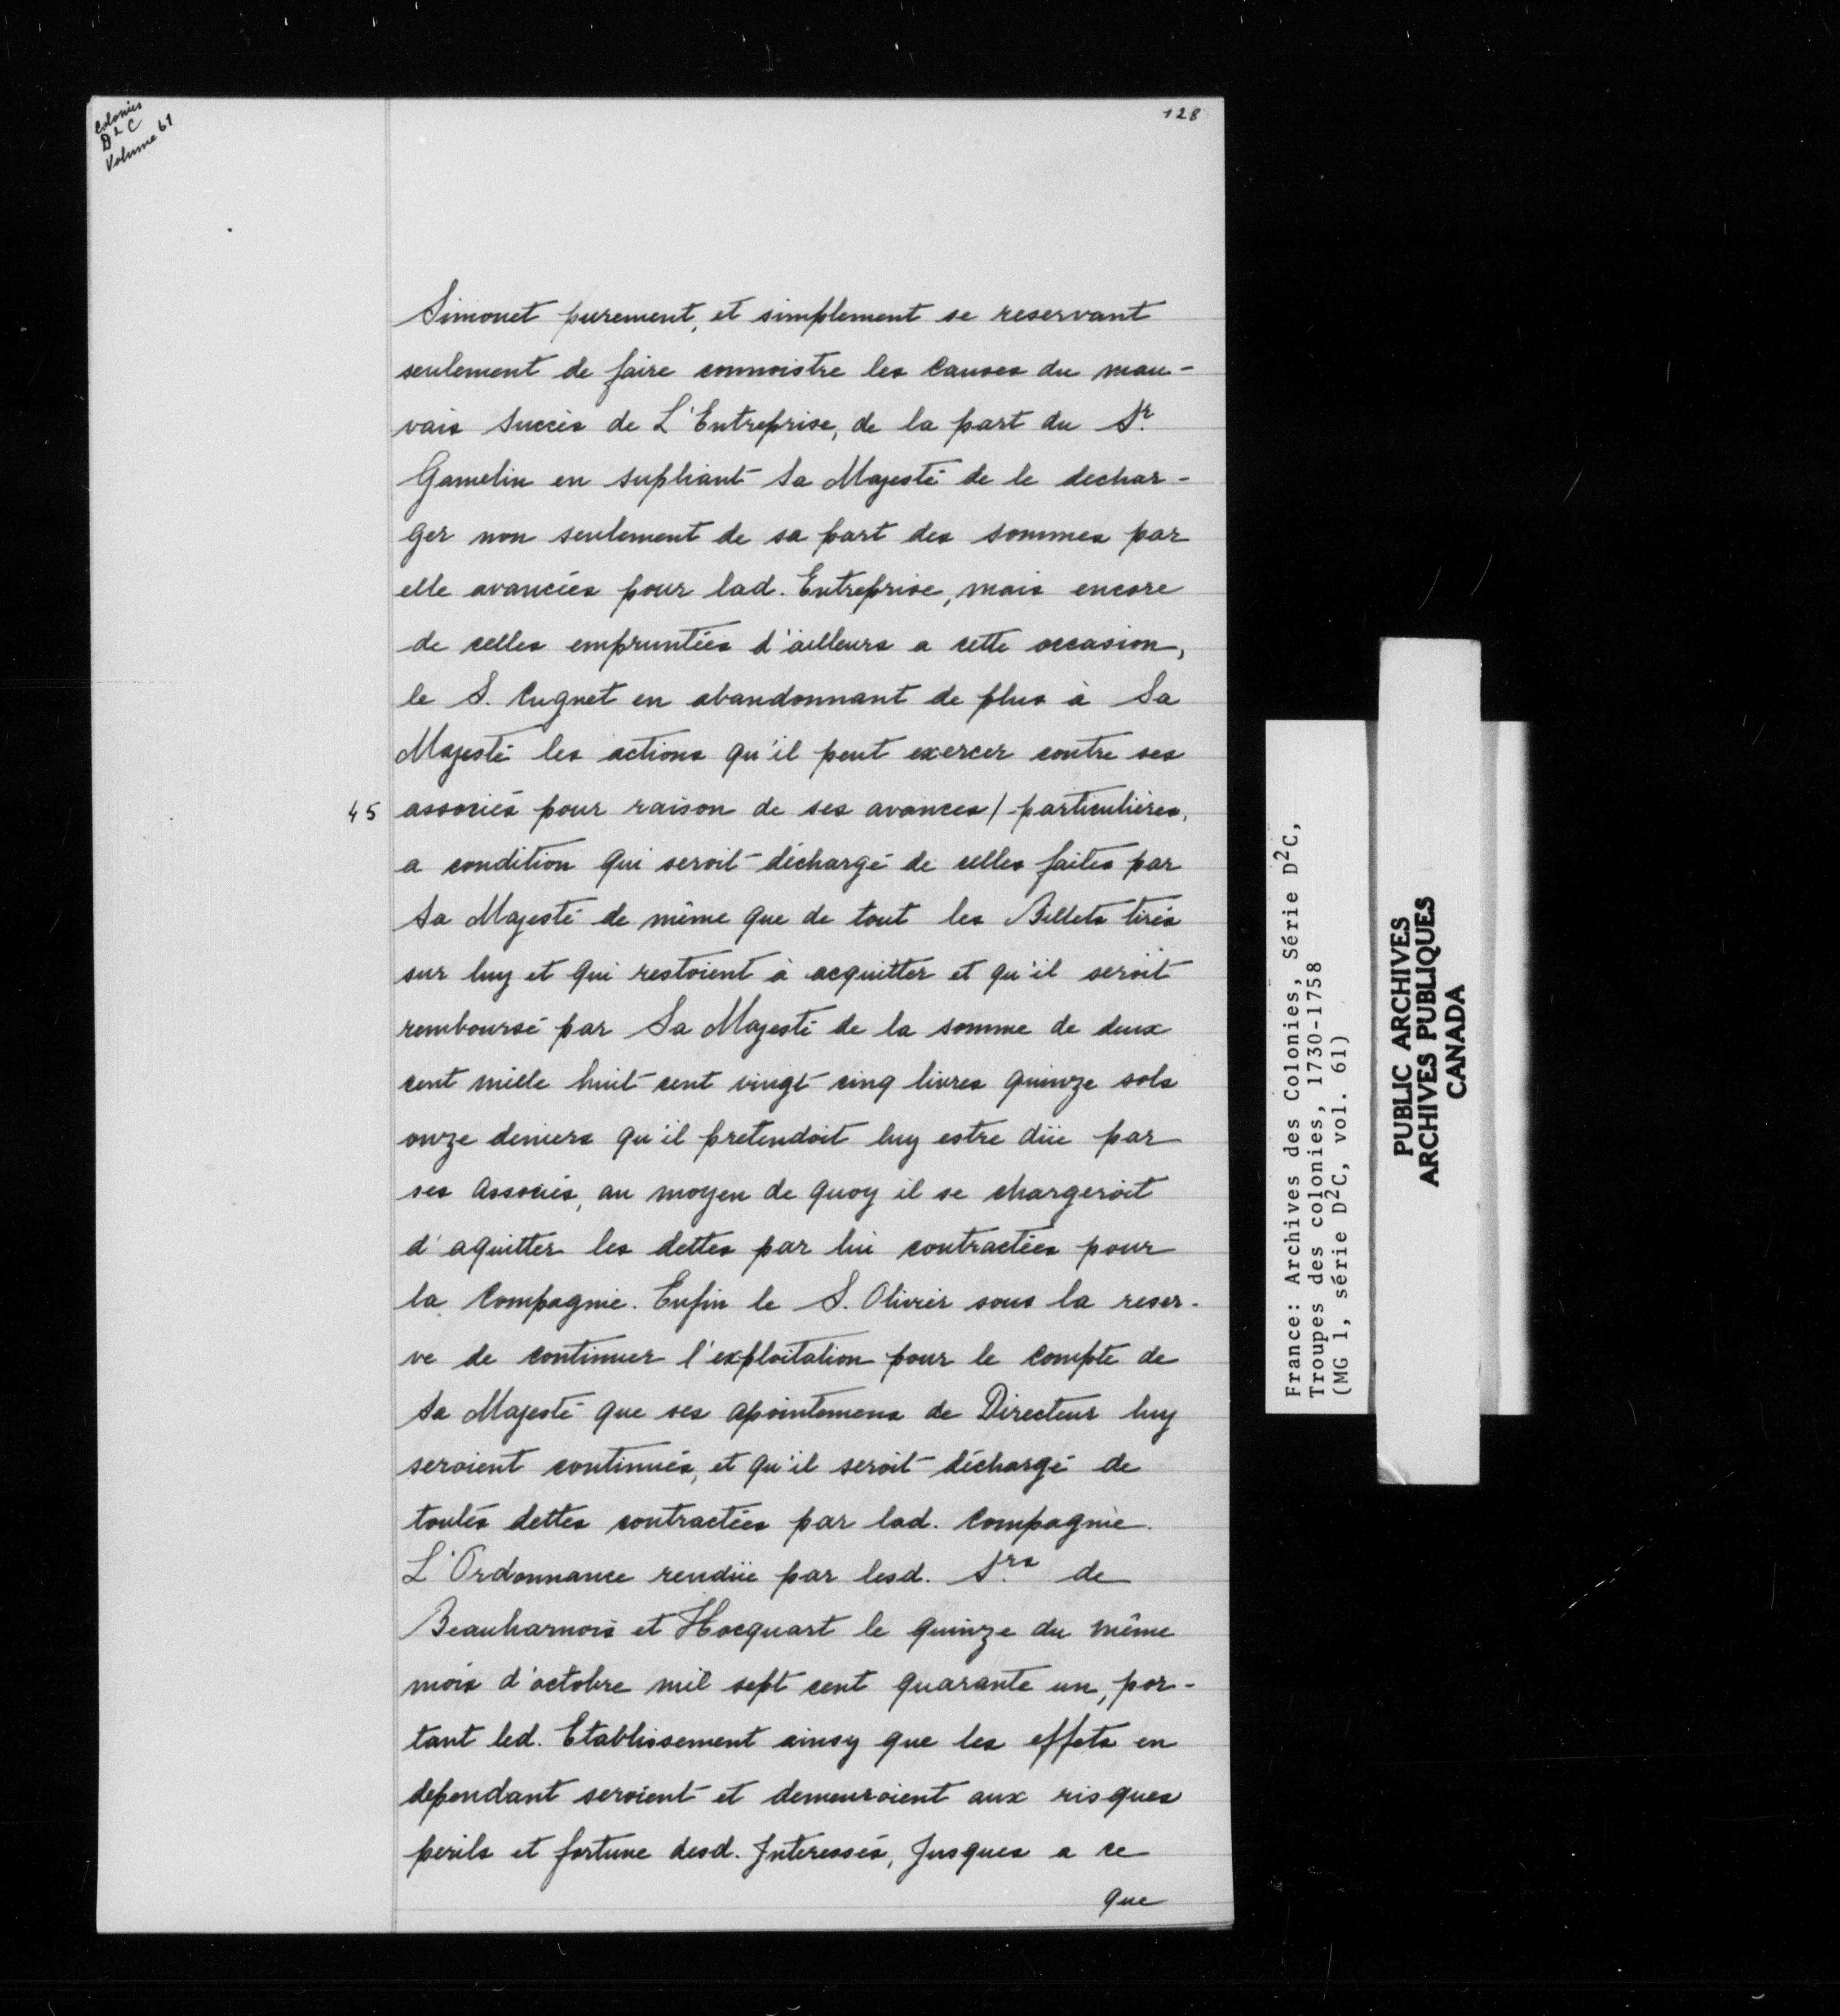 Colonies
D²C
Volume 61
128
Simonet purement, et simplement se reservant
seulement de faire connoistre les Causes du mau-
vais Succès de L'Entreprise, de la part du Sr.
Gamelin en supliant Sa Majesté de le dechar-
ger non seulement de sa part des sommes par
elle avancées pour lad. Entreprise, mais encore
de celles empruntées d'ailleurs a cette occasion,
le S. Cugnet en abandonnant de plus à Sa
Majesté les actions qu'il peut exercer contre ses
45 associés pour raison de ses avances/particulières,
a condition qui seroit déchargé de celles faites par
Sa Majesté de même que de tout les Billets tirés
sur luy et qui restoient à acquitter et qu'il seroit
remboursé par Sa Majesté de la somme de deux
cent mille huit cent vingt cinq livres quinze sols
onze deniers qu'il pretendoit luy estre düe par
ses Associés, au moyen de quoy il se chargeroit
d'aquitter les dettes par lui contractées pour
la Compagnie. Enfin le S. Olivier sous la reser-
ve de continuer l'exploitation pour le compte de
Sa Majesté que ses apointemens de Directeur luy
seroient continués, et qu'il seroit déchargé de
toutés dettes contractées par lad. Compagnie.
L'Ordonnance rendüe par lesd. Srs. de
Beauharnois et Hocquart le quinze du même
mois d'octobre mil sept cent quarante un, por-
tant led. Etablissement ainsy que les effets en
dependant seroient et demeuroient aux risques
perils et fortune desd. Interessés, Jusques a ce
que
France: Archives des Colonies, Série D²C,
Troupes des colonies, 1730-1758
(MG 1, série D²C, vol. 61)
PUBLIC ARCHIVES
ARCHIVES PUBLIQUES
CANADA